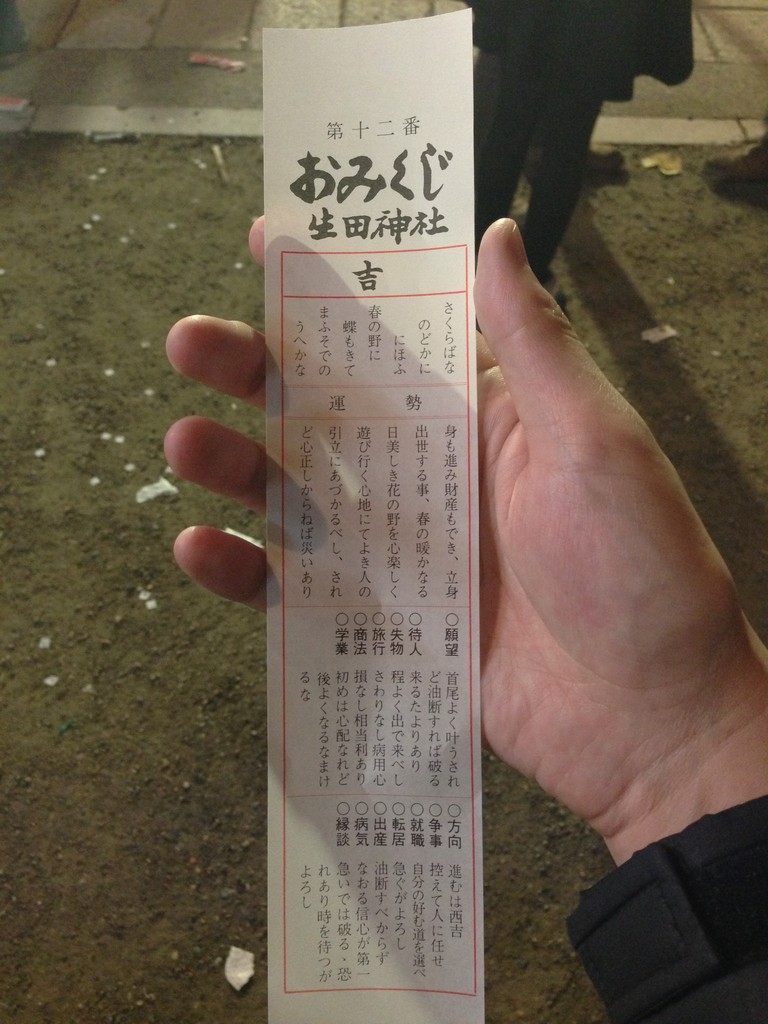 第十二番
おみくじ
生田神社
吉
さくらばな
のどかに
にほふ
春の野に
蝶もきて
まふそでの
うへかな
運勢
身も進み財産もでき、立身
出世する事、春の暖かなる
日美しき花の野を心楽しく
遊び行く心地にてよき人の
引立にあづかるべし、され
ど心正しからねば災いあり
○願望
○待人
○失物
○旅行
○商法
○学業
首尾よく叶うされ
ど油断すれば破る
来るたよりあり
程よく出で来べし
さわりなし病用心
損なし相当利あり
初めは心配なれど
後よくなるなまけ
るな
○方向
○争事
○就職
○転居
○出産
○病気
○縁談
進むは西吉
控えて人に任せ
自分の好む道を選べ
急ぐがよろし
油断すべからず
なおる信心が第一
急いでは破る、恐
れあり時を待つが
よろし